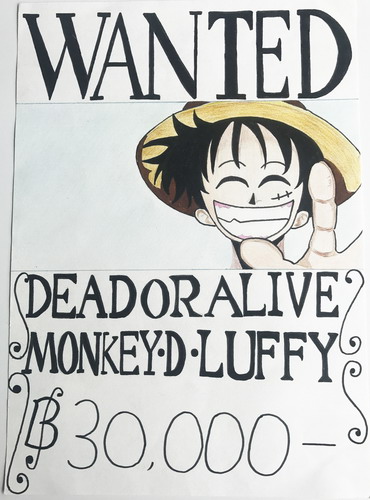 WANTED
DEAD OR ALIVE
MONKEY·D·LUFFY
฿30,000–